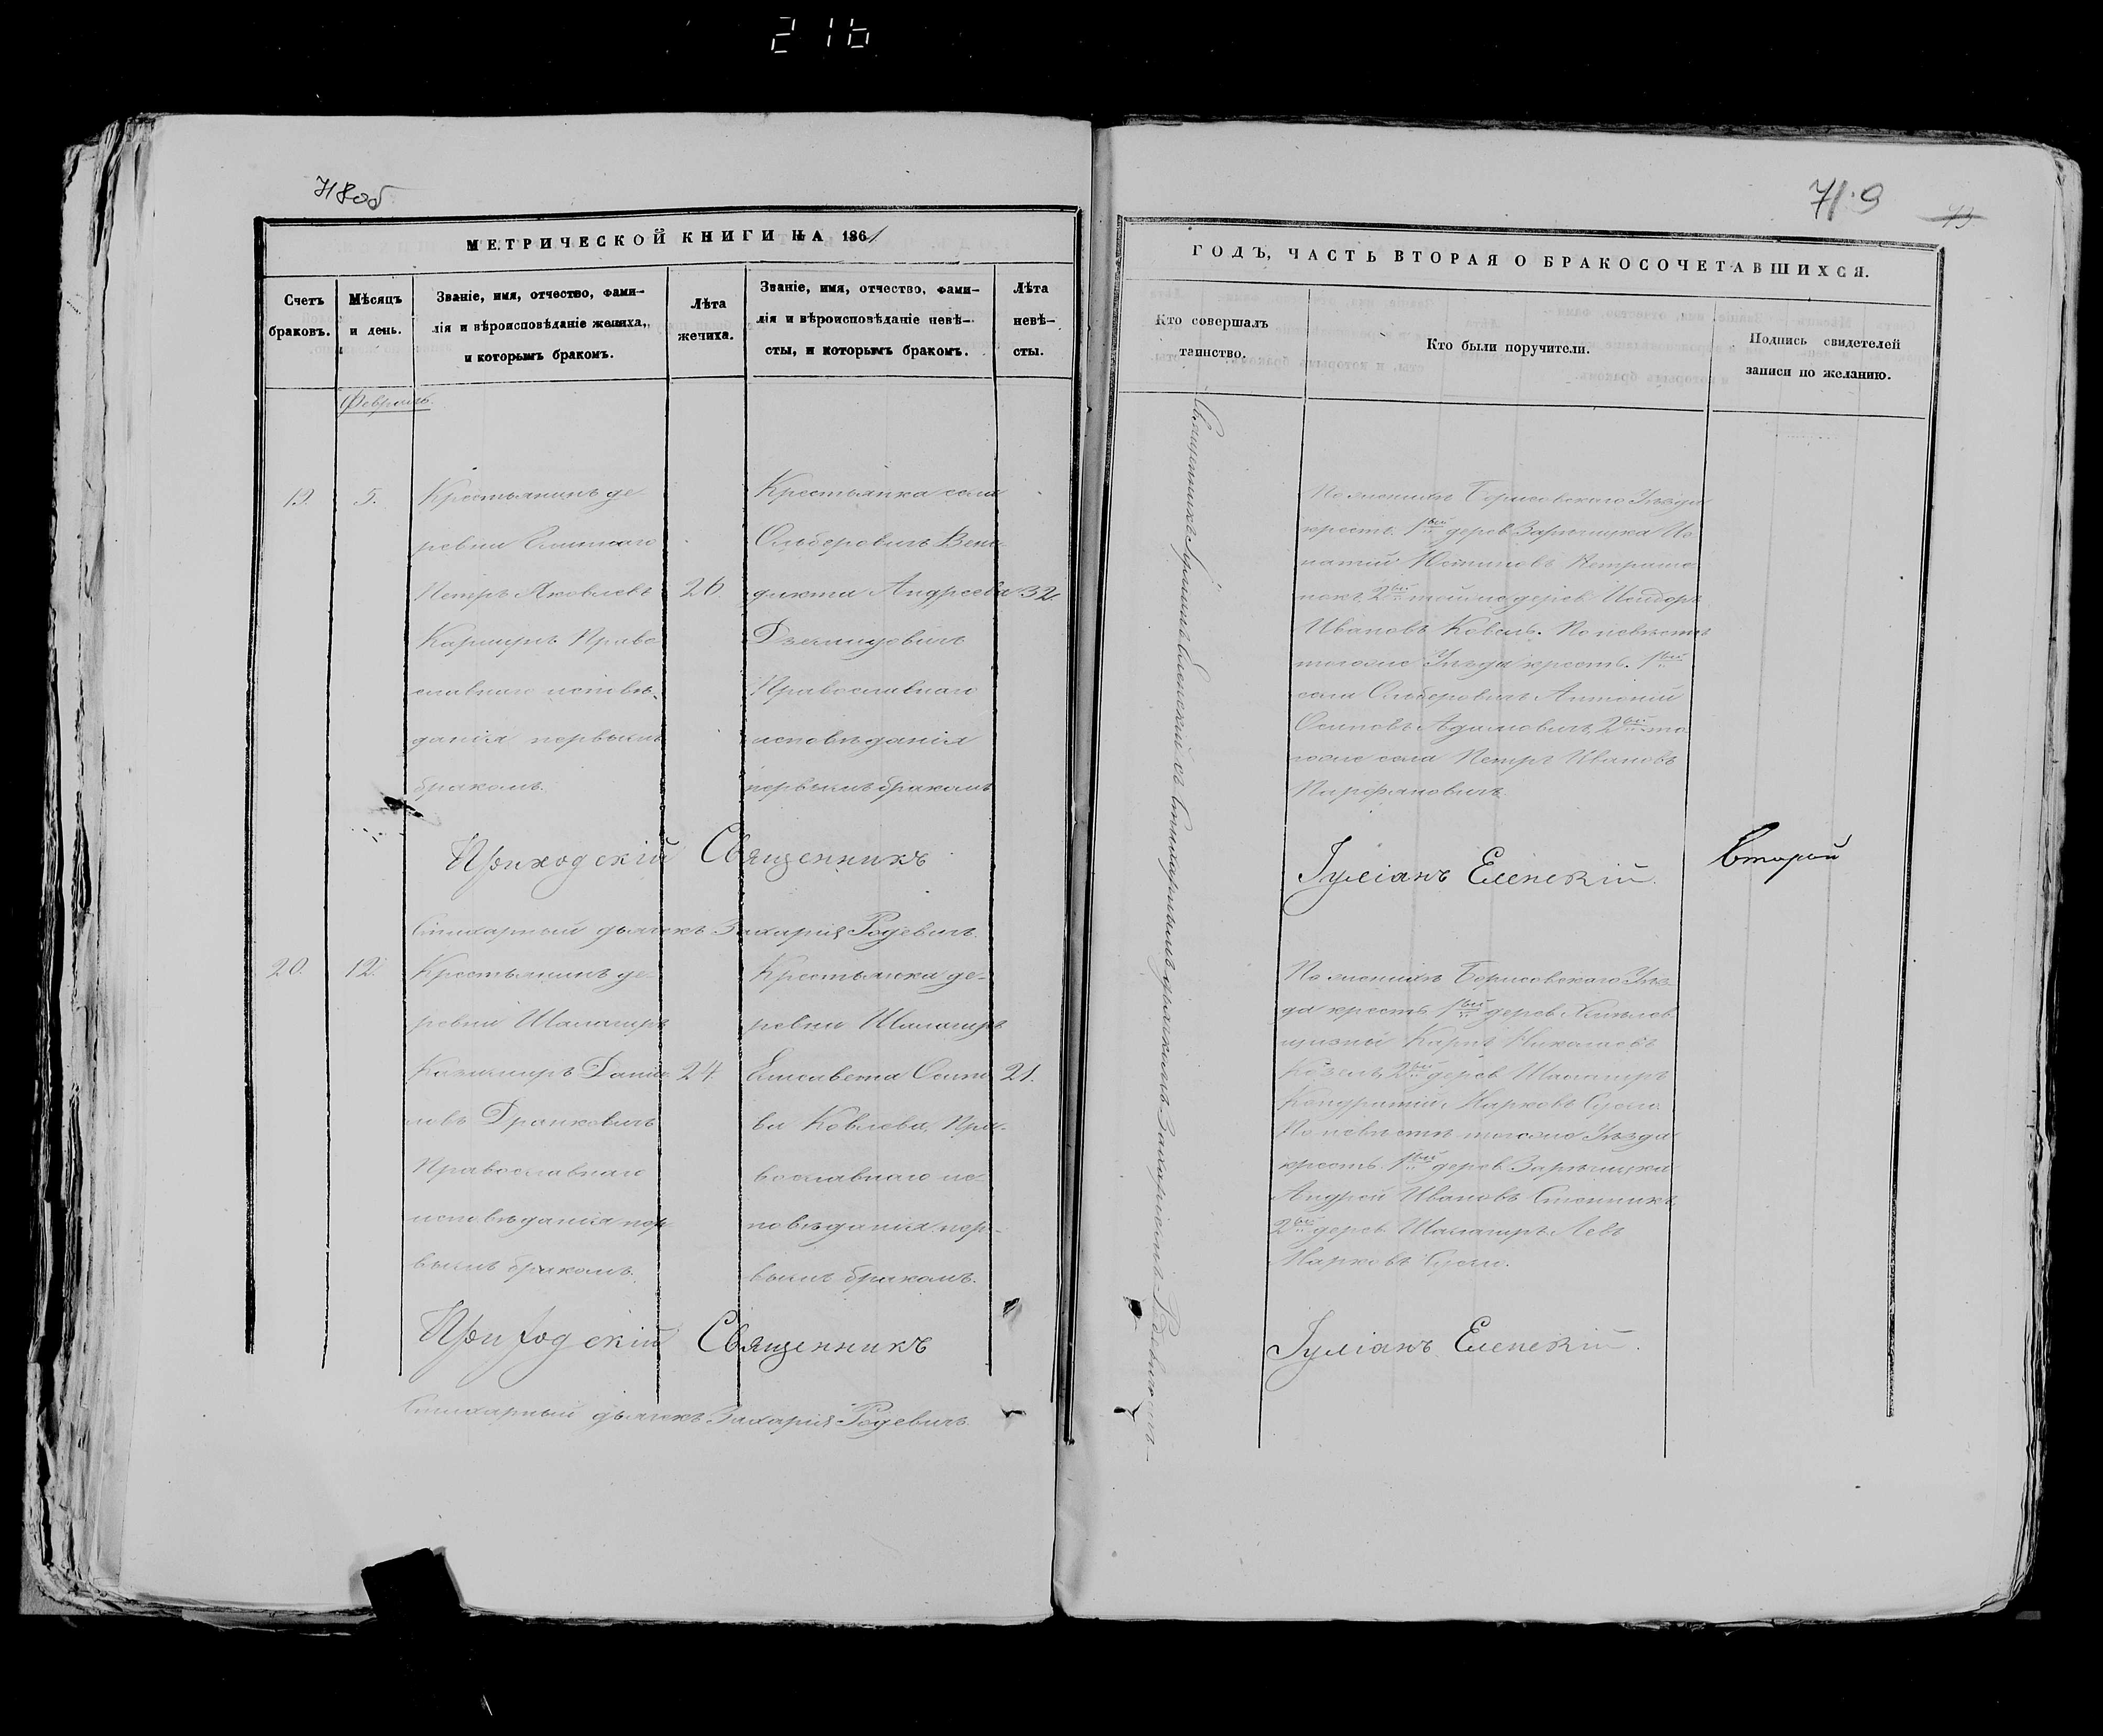 216
718об
МЕТРИЧЕСКОЙ КНИГИ НА 1861
Счетъ браковъ.
Мѣсяцъ и день.
Званіе, имя, отчество, фами-
лія и вѣроисповѣданіе жениха,
и которымъ бракомъ.
Лѣта жениха.
Званіе, имя, отчество, фами-
лія и вѣроисповѣданіе невѣ-
сты, и которымъ бракомъ.
Лѣта невѣ-
сты.
Февраль.
19. 5.
Крестьянинъ де-
ревни
Петръ Яковлевъ
Православнаго исповѣ-
данія первымъ
бракомъ.
26.
Крестьянка села
Ольберовичъ Вене-
дикта Андреева
Православнаго
исповѣданія
первымъ бракомъ
32.
Приходскій Священникъ
Стихарный дьячекъ Захарія Родевичъ.
20. 12.
Крестьянинъ де-
ревни Шаламиръ
Казимиръ Дани-
ловъ Дранковичъ
Православнаго
исповѣданія пер-
вымъ бракомъ.
24.
Крестьянка де-
ревни Шаламиръ
Елисавета Осипо-
ва Ковлева, Пра-
вославнаго ис-
повѣданія пер-
вымъ бракомъ.
21.
Приходскій Священникъ
Стихарный дьячекъ Захарія Родевичъ.
719
73
ГОДЪ, ЧАСТЬ ВТОРАЯ О БРАКОСОЧЕТАВШИХСЯ.
Кто совершалъ
таинство.
Кто были поручители.
Подпись свидетелей
записи по желанію.
Священникъ Іуліанъ Еленскій съ Стихарнымъ дьячкомъ Захаріемъ Родевичемъ
По женихѣ Борисовскаго Уѣзда
крест. 1ый дерев Зарѣчицка Иг-
натій Юстиновъ Петраше-
нокъ, 2ой тойже дерев Исидоръ
Ивановъ Ковель. По невѣстѣ
тогоже Уѣзда крест. 1ый
села Ольберовичъ Антоній
Осиповъ Адамовичъ, 2ой то-
гоже села Петръ Ивановъ
Парфановичъ
Іуліанъ Еленскій.
Второй
По женихѣ Борисовскаго Уѣз-
да крест. 1ый дерев
Карпъ Николаевъ
Козелъ, 2ой дерев Шаламиръ
Кондратій Марковъ
По невѣстѣ тогоже Уѣзда
крест. 1ый дерев Зарѣчицка
Андрей Ивановъ
2ой дерев Шаламиръ Левъ
Марковъ
Іуліанъ Еленскій.